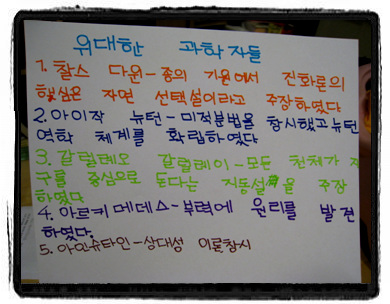 위대한 과학자들
1. 찰스 다윈-종의 기원에서 진화론의
핵심은 자연 선택설이라고 주장하였다
2. 아이작 뉴턴-미적분법을 창시했고 뉴턴
역학 체계를 확립하였다
3. 갈릴레오 갈릴레이-모든 천체가 지
구를 중심으로 돈다는 지동설을 주장
하였다
4. 아르키메데스-부력에 원리를 발견
하였다.
5. 아인슈타인-상대성 이론창시